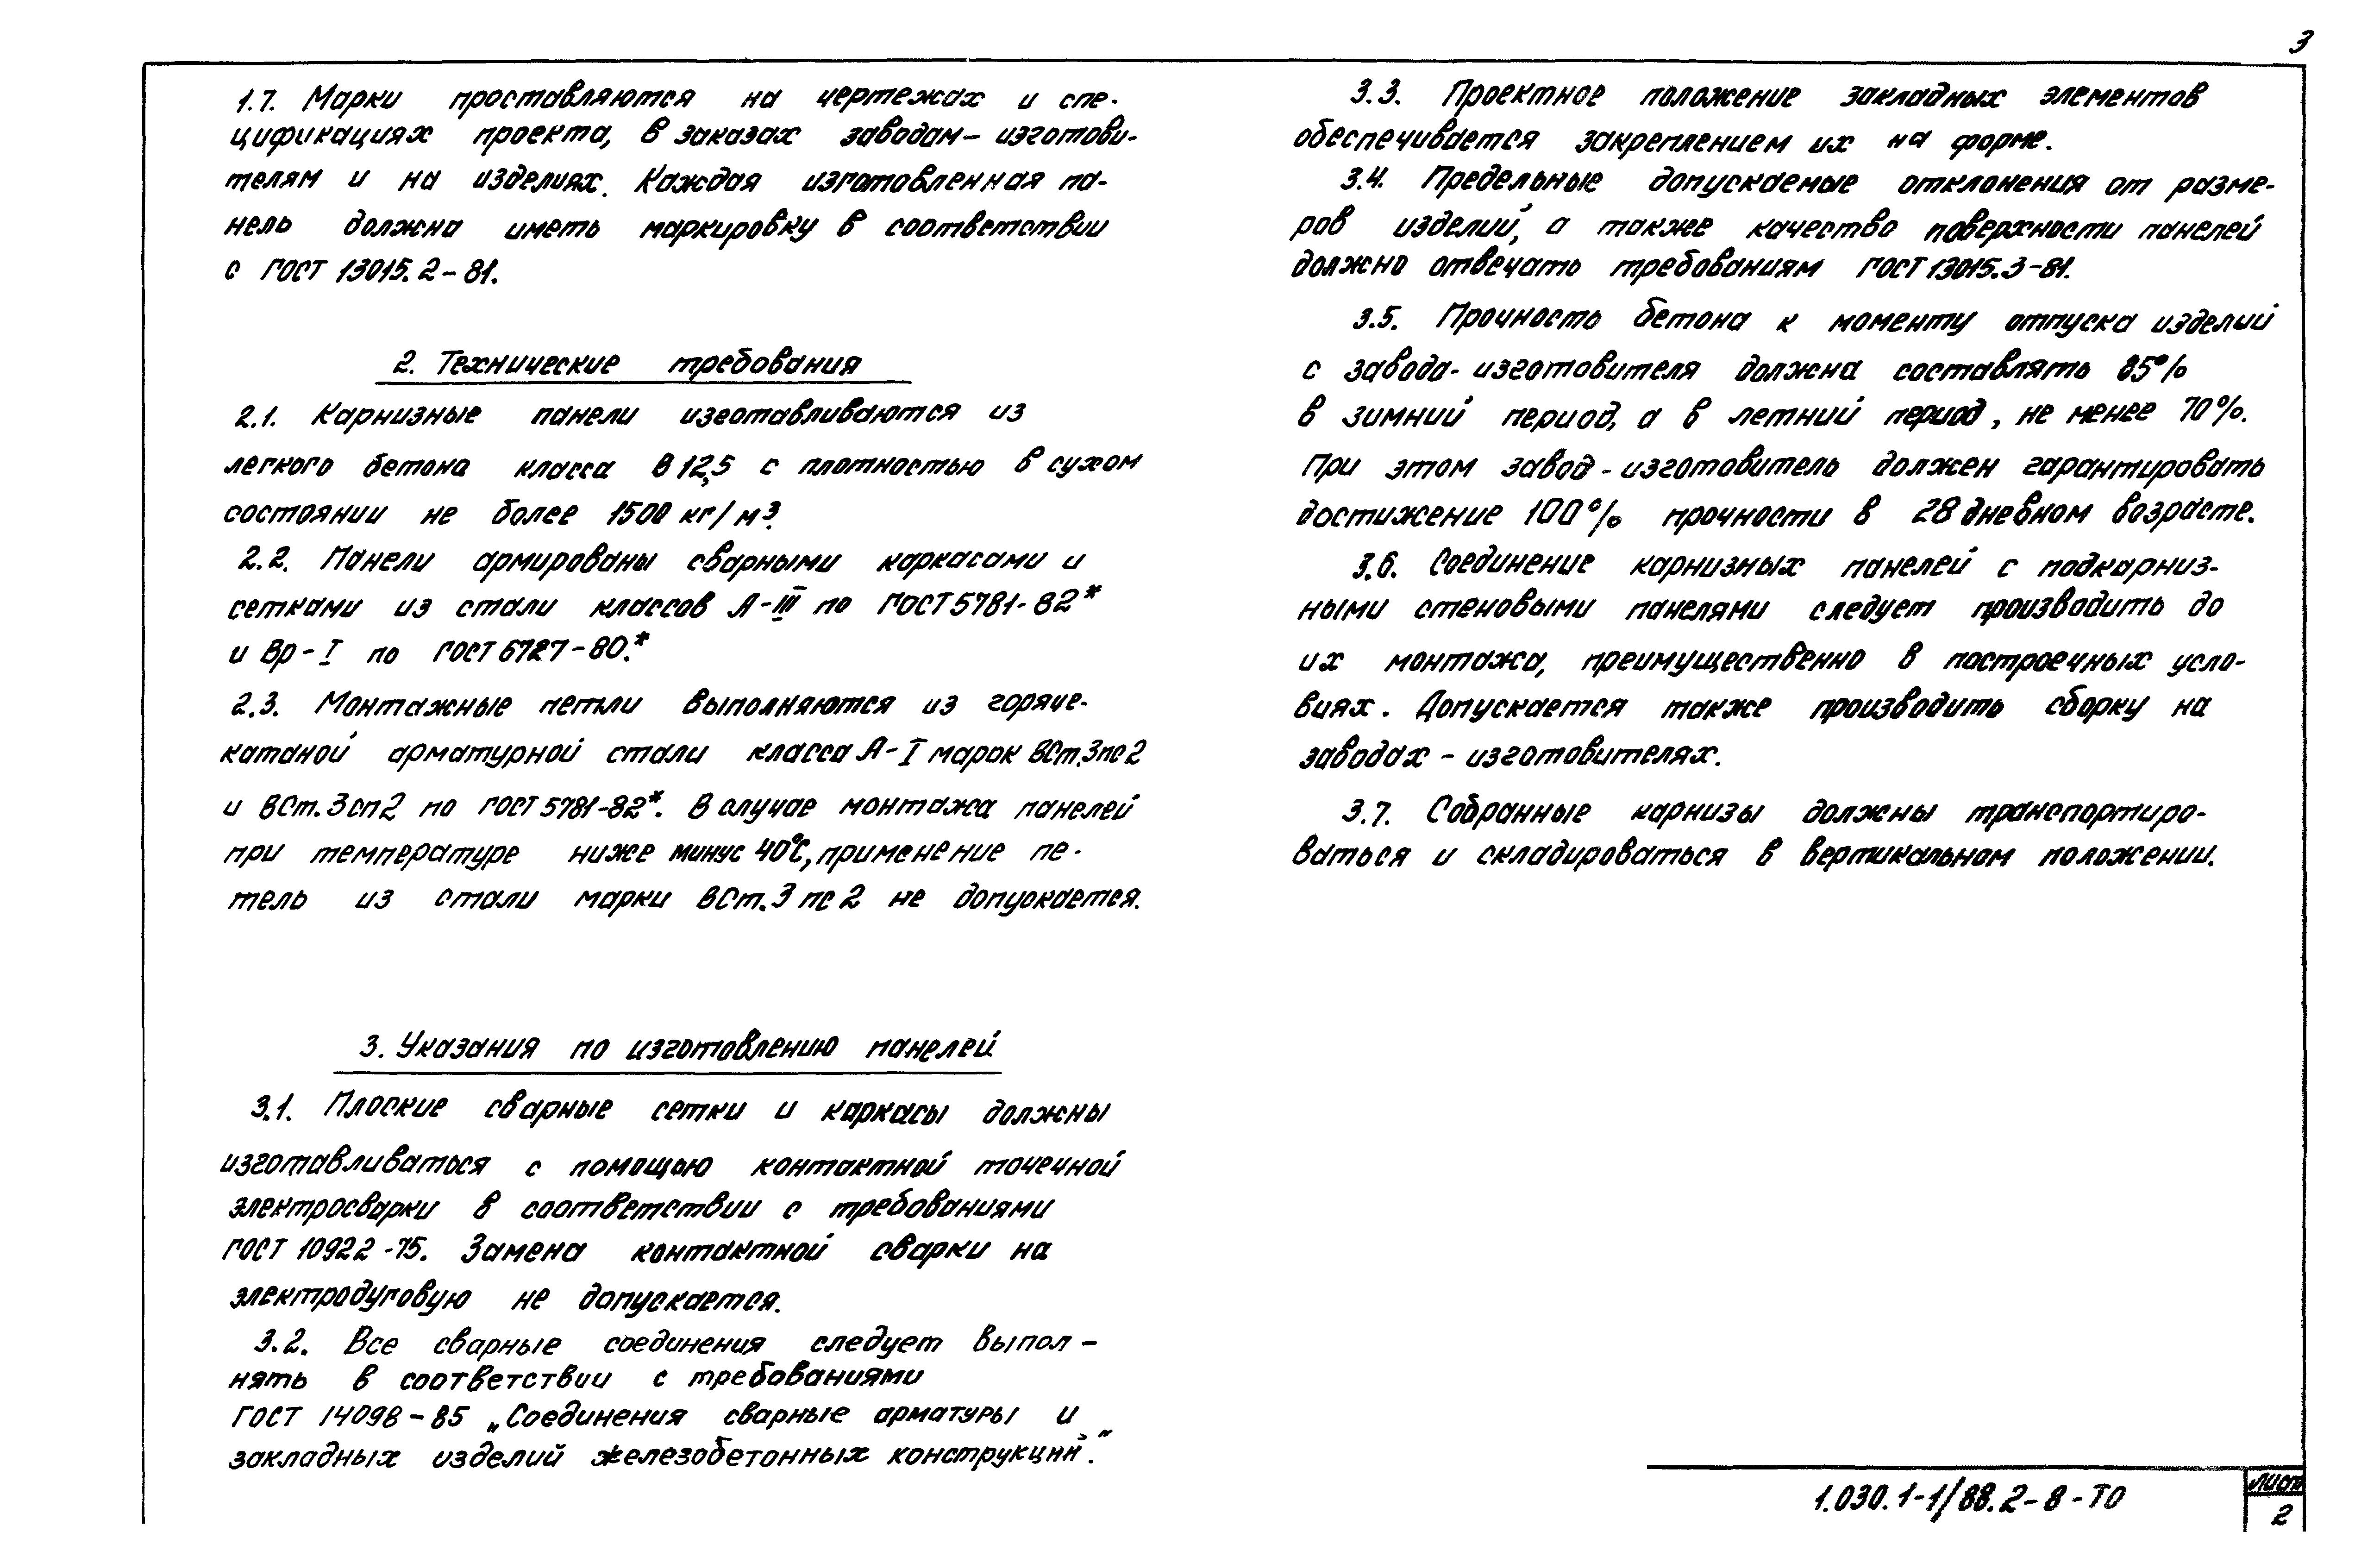 3
1.7. Марки проставляются на чертежах и спе-
цификациях проекта, в заказах заводам – изготови-
телям и на изделиях. Каждая изготовленная па-
нель должна иметь маркировку в соответствии
с ГОСТ 13015.2-81.
2. Технические требования
2.1. Карнизные панели изготавливаются из
легкого бетона класса В 12,5 с плотностью в сухом
состоянии не более 1500 кг/м³.
2.2. Панели армированы сварными каркасами и
сетками из стали классов А-III по ГОСТ 5781-82*
и Вр-I по ГОСТ 6727-80.*
2.3. Монтажные петли выполняются из горяче-
катаной арматурной стали класса А-I марок ВСт.3пс2
и ВСт.3сп2 по ГОСТ 5781-82*. В случае монтажа панелей
при температуре ниже минус 40°С, применение пе-
тель из стали марки ВСт.3 пс 2 не допускается.
3. Указания по изготовлению панелей
3.1. Плоские сварные сетки и каркасы должны
изготавливаться с помощью контактной точечной
электросварки в соответствии с требованиями
ГОСТ 10922-75. Замена контактной сварки на
электродуговую не допускается.
3.2. Все сварные соединения следует выпол-
нять в соответствии с требованиями
ГОСТ 14098-85 „Соединения сварные арматуры и
закладных изделий железобетонных конструкций“.
3.3. Проектное положение закладных элементов
обеспечивается закреплением их на форме.
3.4. Предельные допускаемые отклонения от разме-
ров изделий, а также качество поверхности панелей
должно отвечать требованиям ГОСТ 13015.3-81.
3.5. Прочность бетона к моменту отпуска изделий
с завода-изготовителя должна составлять 85%
в зимний период, а в летний период, не менее 70%.
При этом завод-изготовитель должен гарантировать
достижение 100% прочности в 28 дневном возрасте.
3.6. Соединение карнизных панелей с подкарниз-
ными стеновыми панелями следует производить до
их монтажа, преимущественно в построечных усло-
виях. Допускается также производить сборку на
заводах – изготовителях.
3.7. Собранные карнизы должны транспортиро-
ваться и складироваться в вертикальном положении.
1.030.1-1/88.2-8-ТО
Лист
2